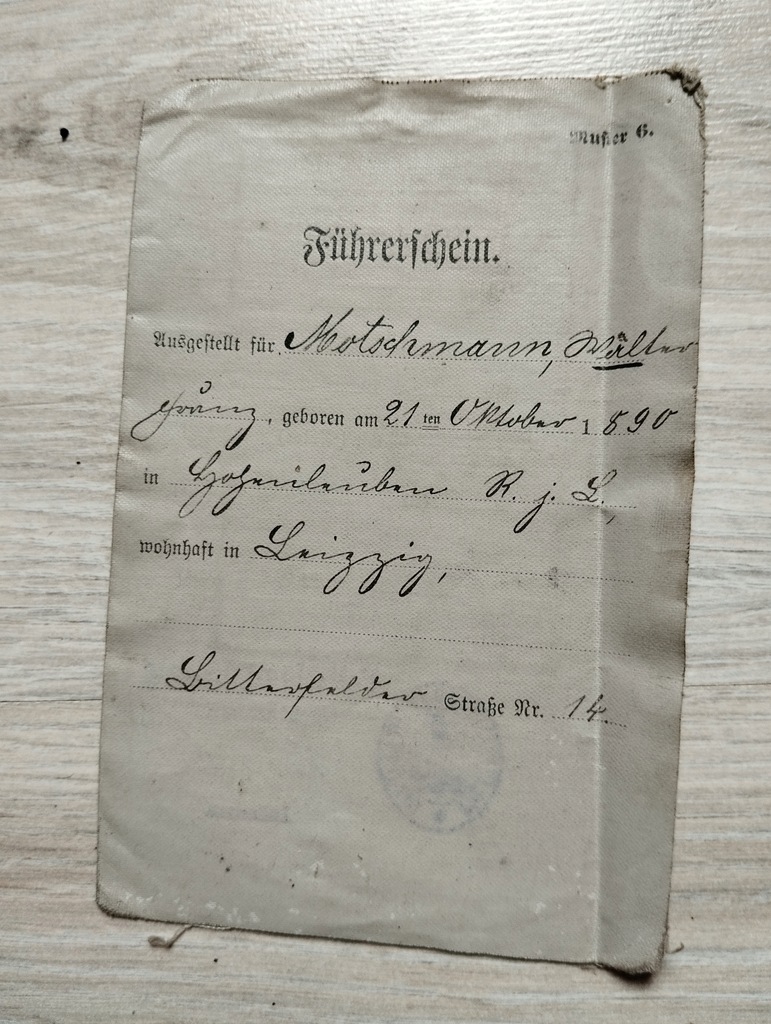 Muster 6.
Führerschein.
Ausgestellt für Motschmann, Walter
Franz, geboren am 21 ten Oktober 1890
in Hohenleuben R. j. L.,
wohnhaft in Leipzig,
Bitterfelder Straße Nr. 14.